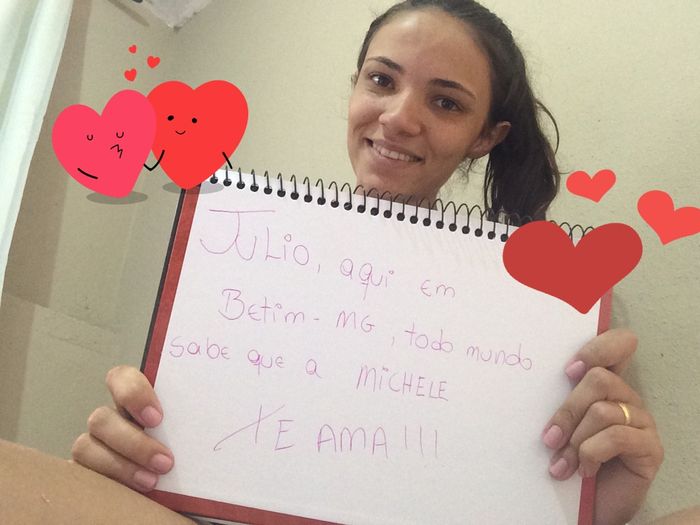 JULIO, aqui em
Betim - MG, todo mundo
sabe que a MICHELE
TE AMA!!!